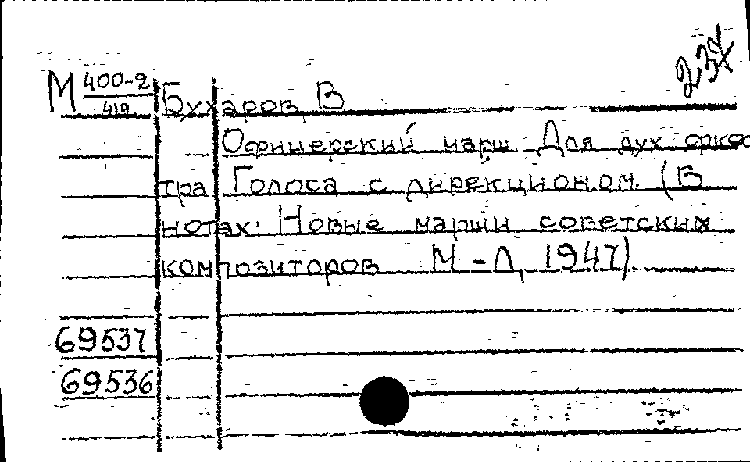 М 400-2
419
Бухаров В
Офицерский марш Для дух орке
тра Голоса с дирекционом. (В
нотах: Новые марши советских
композиторов М-Л, 1947)
69537
69536